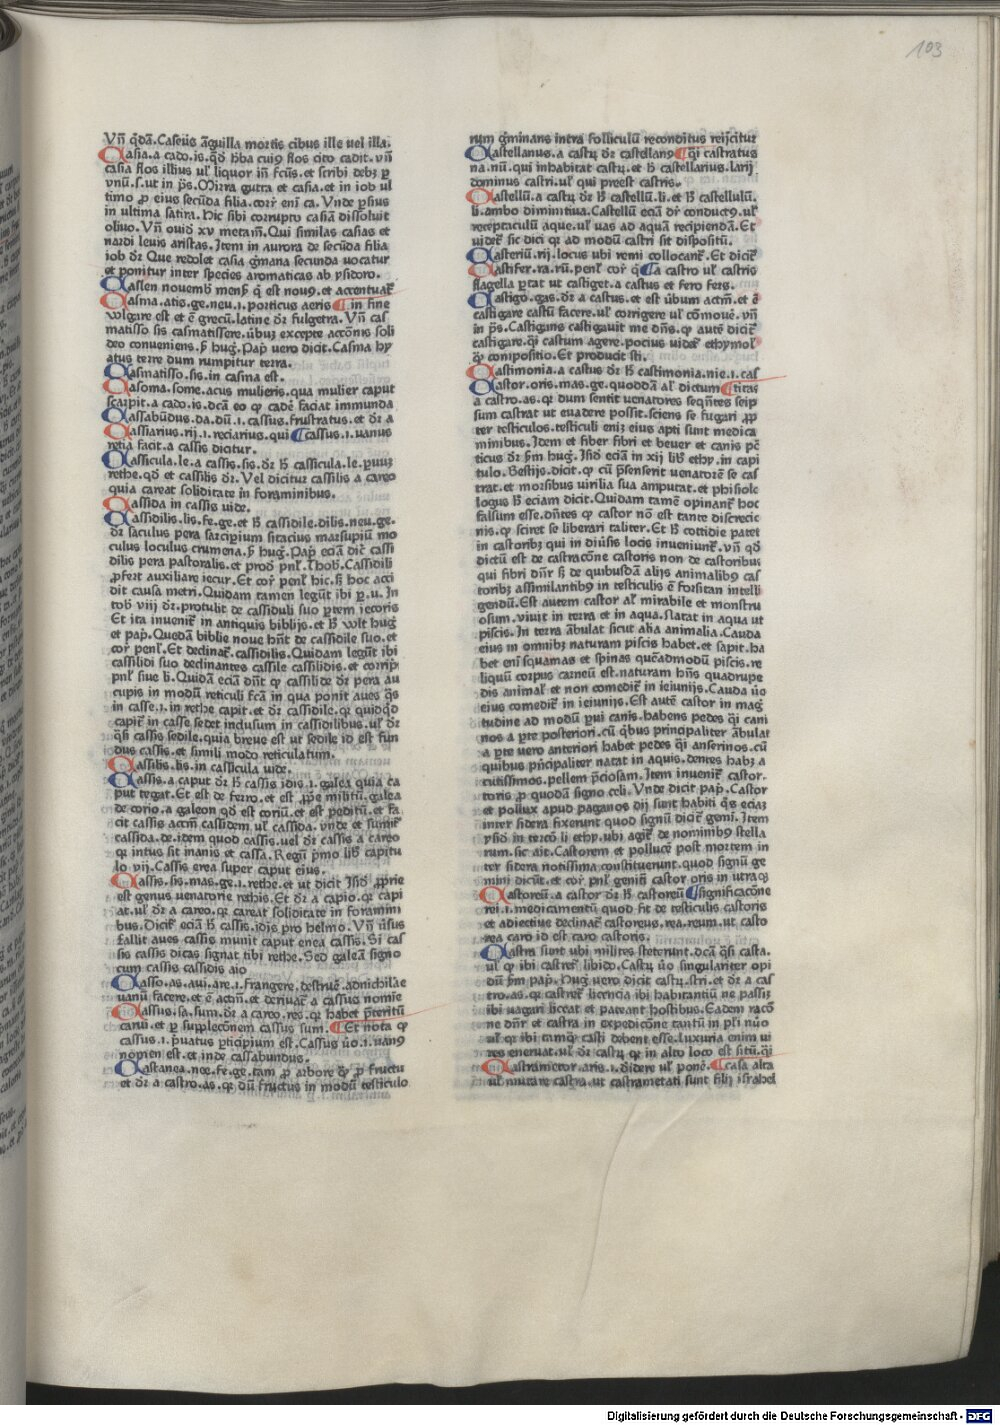 103
Vn̄ q̄dā. Caseꝰ āguilla mortis cibus ille uel illa.
Casia. a cado. is. qd̛ h̄ba cuiꝰ flos cito cadit. vn̄
casia flos illius ul̛ liquor in f̄cūs. et scribi debꝫ ꝑ
vnū .s. ut in p̄s. Mirra gutta et casia. et in iob ul
timo ꝓ eius secūda filia. cor̛ eni̅ ca. Vnde ꝑsius
in ultima satira. Hic sibi corrupto casiā dissoluit
olivo. Vn̄ ouid̛ xv metam̄. Qui similas casias et
nardi leuis aristas. Item in aurora de secūda filia
iob dr̛ Que redolet casia ḡmana secunda uocatur
et ponitur inter species aromaticas ab ysidoro.
Caslen nouemb̛ mens̛ q̄ est nouꝰ. et accentuat̛
Casma. atis. ge. neu .i. porticus aeris ¶ in fine
Volgare est et ē grecū. latine dr̛ fulgetra. Vn̄ cas
matisso sis casmatissere. ūbuꝫ excepte accōnis soli
deo conueniens. ẜ hug̛. Pap̛ vero dicit. Casma hy
atus terre dum rumpitur terra.
Casmatisso. sis. in casma est.
Casoma. some. acus mulieris. qua mulier caput
scarpit. a cado. is. dc̄a eo qꝫ cadē faciat immunda
Cassabūdus. da. dū .i. cassus. frustratus. et dr̛ a
Cassiarius. rij .i. reciarius. qui ¶ cassus .i. uanus
retia facit. a cassis dicitur.
Cassicula. le. a cassis. sis. dr̛ h̄ cassicula. le. ꝑuuꝫ
rethe. qd̛ et cassilis dr̛. Vel dicitur cassilis a careo
quia careat soliditate in foraminibus.
Cassida in cassis uide.
Cassidilis. lis. fe. ge. et h̄ cassidile. dilis. neu. ge.
dr̛ saculus pera sarcipium sitacius marsupiū mo
culus loculus crumena. ẜ hug̛. Pap̛ eciā dic̛ cassi
dilis pera pastoralis. et prod̛ pnl̛. Thob̛. Cassidili
ꝓfert auxiliare iecur. Et cor̛ penl̛ hic. sꝫ hoc acci
dit causa metri. Quidam tamen legūt ibi ꝑ .u. In
tob̛ viij dr̛. protulit de cassiduli suo ꝑtem iecoris
Et ita inuenit̛ in antiquis biblijs. et h̄ wlt hug̛
et pap̛. Quedā biblie noue hn̄t de cassidile suo. et
cor̛ penl̛. Et declinat̛. cassidilis. Quidam legūt ibi
cassilidi suo declinantes cassile cassilidis. et corrip̛
pnl̛ siue li. Quidā eciā dn̄t qꝫ cassilide dr̛ pera au
cupis in modū reticuli fc̄a in qua ponit aues q̄s
in casse .i. in rethe capit. et dr̛ cassidile. qꝛ quidqd̛
capit̛ in casse sedet inclusum in cassidilibus. ul̛ dr̛
q̄si cassis sedile. quia breue est ut sedile id est fun
dus cassis. et simili modo reticulatum.
Cassilis. lis. in cassicula uide.
Cassis. a caput dr̛ h̄ cassis idis .i. galea quia ca
put tegat. Et est de ferro. et est ꝓp̛e militū. galea
de corio. a galeon qd̛ est coriū. et est peditū. et fa
cit cassis actm̄ cassidem. ul̛ cassida. vnde et sumit̛
cassida. de. idem quod cassis. uel dr̛ cassis a careo
qꝛ intus sit inanis et cassa. Regū p̄mo lib̛ capitu
lo vij. Cassis erea super caput eius.
Cassis. sis. mas. ge .i. rethe. et ut dicit Isid̛ ꝓprie
est genus uenatorie rethis. Et dr̛ a capio. qꝛ capi
at. ul̛ dr̛ a careo. qꝛ careat soliditate in foramini
bus. Dicit̛ eciā h̄ cassis. idis pro helmo. Vn̄ ūsus
Fallit aues cassis munit caput enea cassis. Si cas
sis cassis dicas signat tibi rethe. Sed galeā signo
cum cassis cassidis aio
Casso. as. aui. are .i. frangere. destruē. adnichilare
uanū facere. et ē actm̄. et deriuat̛ a cassus nomie
Cassus. sa. sum. dr̛ a careo. res. qꝛ habet p̄teritū
carui. et ꝑ supplecōnem cassus sum. ¶ Et nota qꝫ
cassus .i. priuatus ꝑticipium est. Cassus ūo .i. uanꝰ
nomen est. et inde cassabundus.
Castanea. nee. fe. ge. tam ꝓ arbore qꝫ ꝓ fructu
et dr̛ a castro. as. qꝛ dū fructus in modū testiculo
rum ḡminans intra folliculū reconditus reijcitur
Castellanus. a castꝝ dr̛ castellanꝰ ¶ q̄i castratus
na. nū. qui inhabitat castꝝ. et h̄ castellarius. larij
dominus castri. ul̛ qui preest castris.
Castellū. a castꝝ dr̛ h̄ castellū. li. et h̄ castellulū.
li. ambo diminitiua. Castellū eciā dr̛ conductꝰ. ul̛
receptaculū aque. ul̛ uas ad aquā recipiendā. Et
uidet̛ sic dici qꝛ ad modū castri sit dispositū.
Casteriū. rij. locus ubi remi collocant̛. Et dicit̛
Castifer. ra. rū. penl̛ cor̛ q̄ ¶ a castro ul̛ castris
flagella portat ut castiget. a castus et fero fers.
Castigo. gas. dr̛ a castus. et est ūbum actm̄. et ē
castigare castū facere. ul̛ corrigere ul̛ cōmouē. vn̄
in p̄s. Castigans castigauit me dn̄s. qꝫ autē dicit̛
castigare. q̄i castum agere. pocius uidet̛ ethymol̛
qꝫ compositio. Et producit sti.
Castimonia. a castus dr̛ h̄ castimonia. nie .i. cas
Castor. oris. mas. ge. quoddā al̛ dictum ¶ titas
a castro. as. qꝛ dum sentit uenatores seqn̄tes seip
sum castrat ut euadere possit. sciens se fugari ꝓp
ter testiculos. testiculi eniꝫ eius apti sunt medica
minibus. Idem et fiber fibri et beuer et canis pō
ticus dr̛ ẜm hug̛. Isid̛ eciā in xij lib̛ ethy. in capi
tulo. Bestijs. dicit. qꝫ cū p̄senserit uenatorē se cas
trat. et morsibus uirilia sua amputat. et phisiolo
logus h̄ eciam dicit. Quidam tamē opinant̛ hoc
falsum esse. dn̄tes qꝫ castor nō est tante discrecio
nis. qꝫ sciret se liberari taliter. Et h̄ cottidie patet
in castoribꝫ qui in diūsis locis inueniunt̛. vn̄ qd̛
dictū est de castracōne castoris non de castoribus
qui fibri dn̄r sꝫ de quibusdā alijs animalibꝰ cas
toribꝫ assimilantibꝰ in testiculis ē forsitan intelli
gendū. Est autem castor al̛ mirabile et monstru
osum. viuit in terra et in aqua. Natat in aqua ut
piscis. In terra ābulat sicut alia animalia. Cauda
eius in omnibꝫ naturam piscis habet. et sapit. ha
bet eni̅ squamas et spinas quēadmodū piscis. re
liquū corpus carneū est. naturam hn̄s quadrupe
dis animal̛ et non comedit̛ in ieiunijs. Cauda ūo
eius comedit̛ in ieiunijs. Est autē castor in mag̅
tudine ad modū ꝑui canis. habens pedes q̄i cani
nos a ꝑte posteriori. cū q̄bus principaliter ābulat
a ꝑte vero anteriori habet pedes q̄i anserinos. cū
quibus p̄ncipaliter natat in aquis. dentes habꝫ a
cutissimos. pellem p̄ciosam. Item inuenit̛ castor.
toris ꝓ quodā signo celi. Vnde dicit pap̛. Castor
et pollux apud paganos dij sunt habiti q̄s eciaꝫ
inter sidera fixerunt quod signū dicit̛ gemi̅. Item
ysid̛ in tercō li ethy. ubi agit̛ de nominibꝫ stella
rum. sic ait. Castorem et pollucē post mortem in
ter sidera notissima constituerunt. quod signū ge
mini dicūt. et cor̛ pnl̛ geniti̅ castor oris in utraqꝫ
Castoreū. a castor dr̛ h̄ castoreū ¶ significacōne
rei .i. medicamentū quod fit de testiculis castoris
et adiectiue declinat̛ castoreus. rea. reum. ut casto
rea caro id est caro castoris.
Castra sunt ubi milites steterunt. dc̄a q̄si casta.
ul̛ qꝫ ibi castret̛ libido. Castꝝ ūo singulariter opi
dū ẜm pap̛. Hug̛ uero dicit castꝝ. stri. et dr̛ a cas
tro. as. qꝛ castret̛ licencia ibi habitantiū ne passiꝫ
ibi uagari liceat et pateant hostibus. Eadem racō
ne dn̄r et castra in expedicōne tantū in pl̛i nūo
ul̛ qꝛ ibi tamqꝫ casti debent esse. luxuria enim ui
res eneruat. ul̛ dr̛ castꝝ qꝛ in alto loco est sitū. q̄i
Castrametor. aris .i. diuidere ul̛ ponē. ¶ casa alta
ul̛ mutare castra. ut castrametati sunt filij israhel
Digitalisierung gefördert durch die Deutsche Forschungsgemeinschaft - DFG